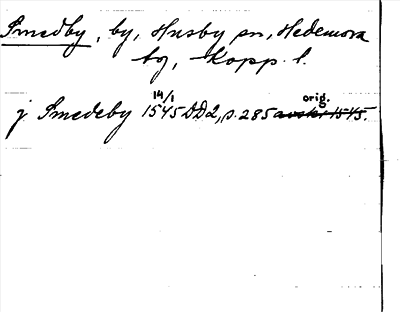 Smedby, by, Husby sn, Hedemora
tg, Kopp. l.
14/1 orig.
j Smedeby 1545 DD2, s. 285 avskr 1545.